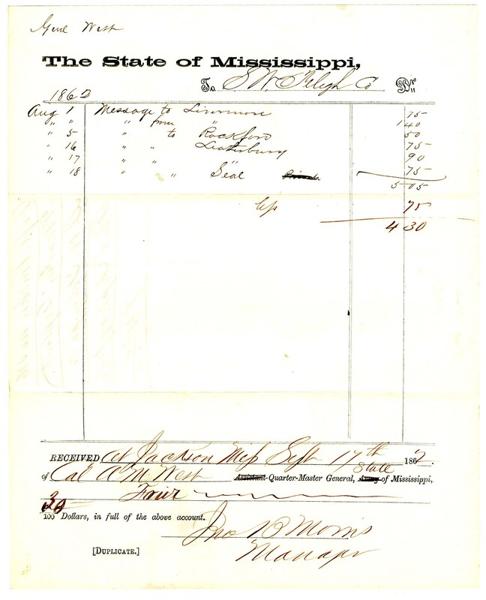 Genl West
The State of Mississippi,
To S W Telegh Co Dr.
1862
Aug 1 Message to Livermore 75
" " " from " 1 40
" 5 " to Rockford 50
" 16 " " 75
" 17 " " " 90
" 18 " " Seal 75
5 05
75
4 30
RECEIVED at Jackson Miss Sept 17th 1862
of Col A M West Assistant Quarter-Master General, Army State of Mississippi,
Four
30
100 Dollars, in full of the above account.
Jno B Morris
Manager
[DUPLICATE.]